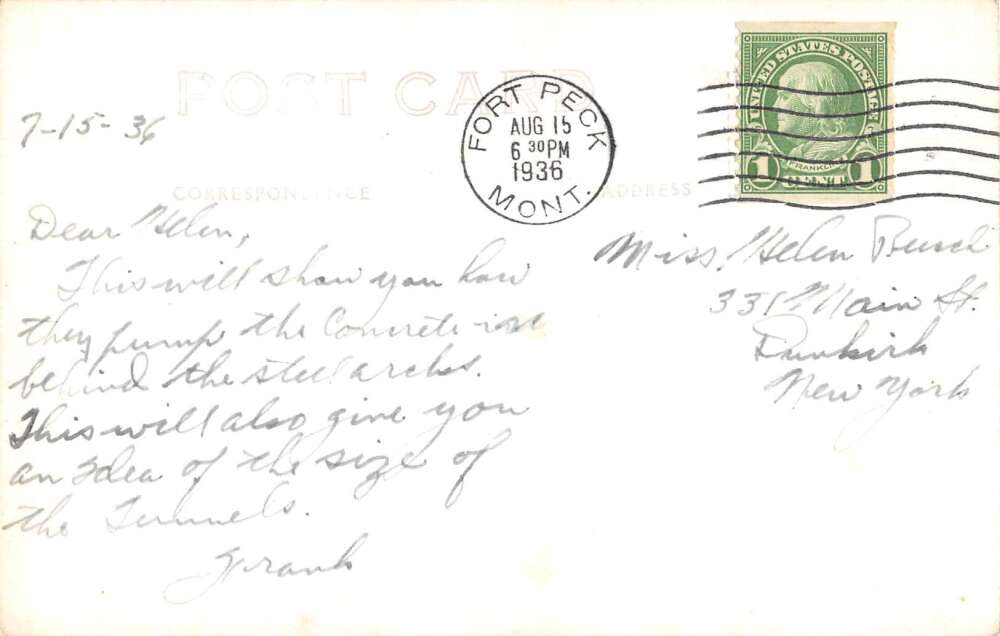 POST CARD
7-15-36
CORRESPONDENCE
ADDRESS
FORT PECK
AUG 15
6 30 PM
1936
MONT.
UNITED STATES POSTAGE
FRANKLIN
1 CENT 1
Dear Helen,
This will show you how
they pump the Concrete in
behind the steel arches.
This will also give you
an Idea of the size of
the Tunnels.
Frank
Miss Helen Busch
331 Main St.
Dunkirk
New York